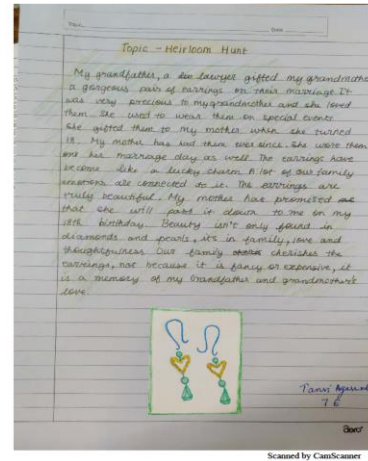 Date
Topic - Heirloom Hunt
My grandfather, a lawyer gifted my grandmothe
a gorgeous pair of earrings on their marriage. It
was very precious to my grandmother and she loved
them. She used to wear them on special events
She gifted them to my mother when she turned
18. My mother has had them ever since. She wore them
on her marriage day as well. The earrings have
become like a lucky charm. A lot of our family
emotions are connected to it. The earrings are
truly beautiful. My mother has promised me
that she will pass it down to me on my
18th birthday. Beauty isn't only found in
diamonds and pearls, it's in family, love and
thoughtfulness. Our family cherishes the
earrings, not because it is fancy or expensive, it
is a memory of my Grandfather and grandmother's
love.
7 E
Scanned by CamScanner